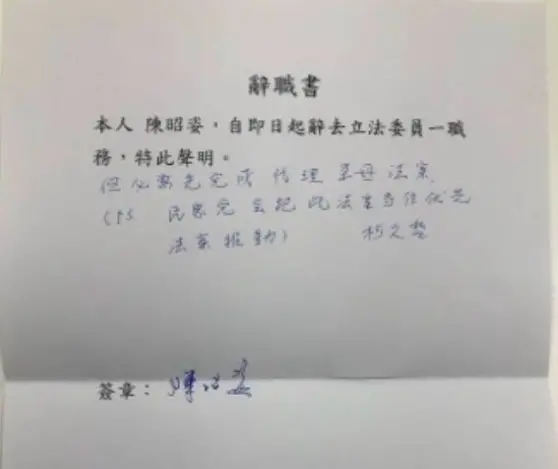 辭職書
本人 陳昭姿，自即日起辭去立法委員一職
務，特此聲明。
但必需先完成 代理孕母法案
(PS 民眾党会把此法案当作优先
法案推動) 柯文哲
簽章： 陳昭姿